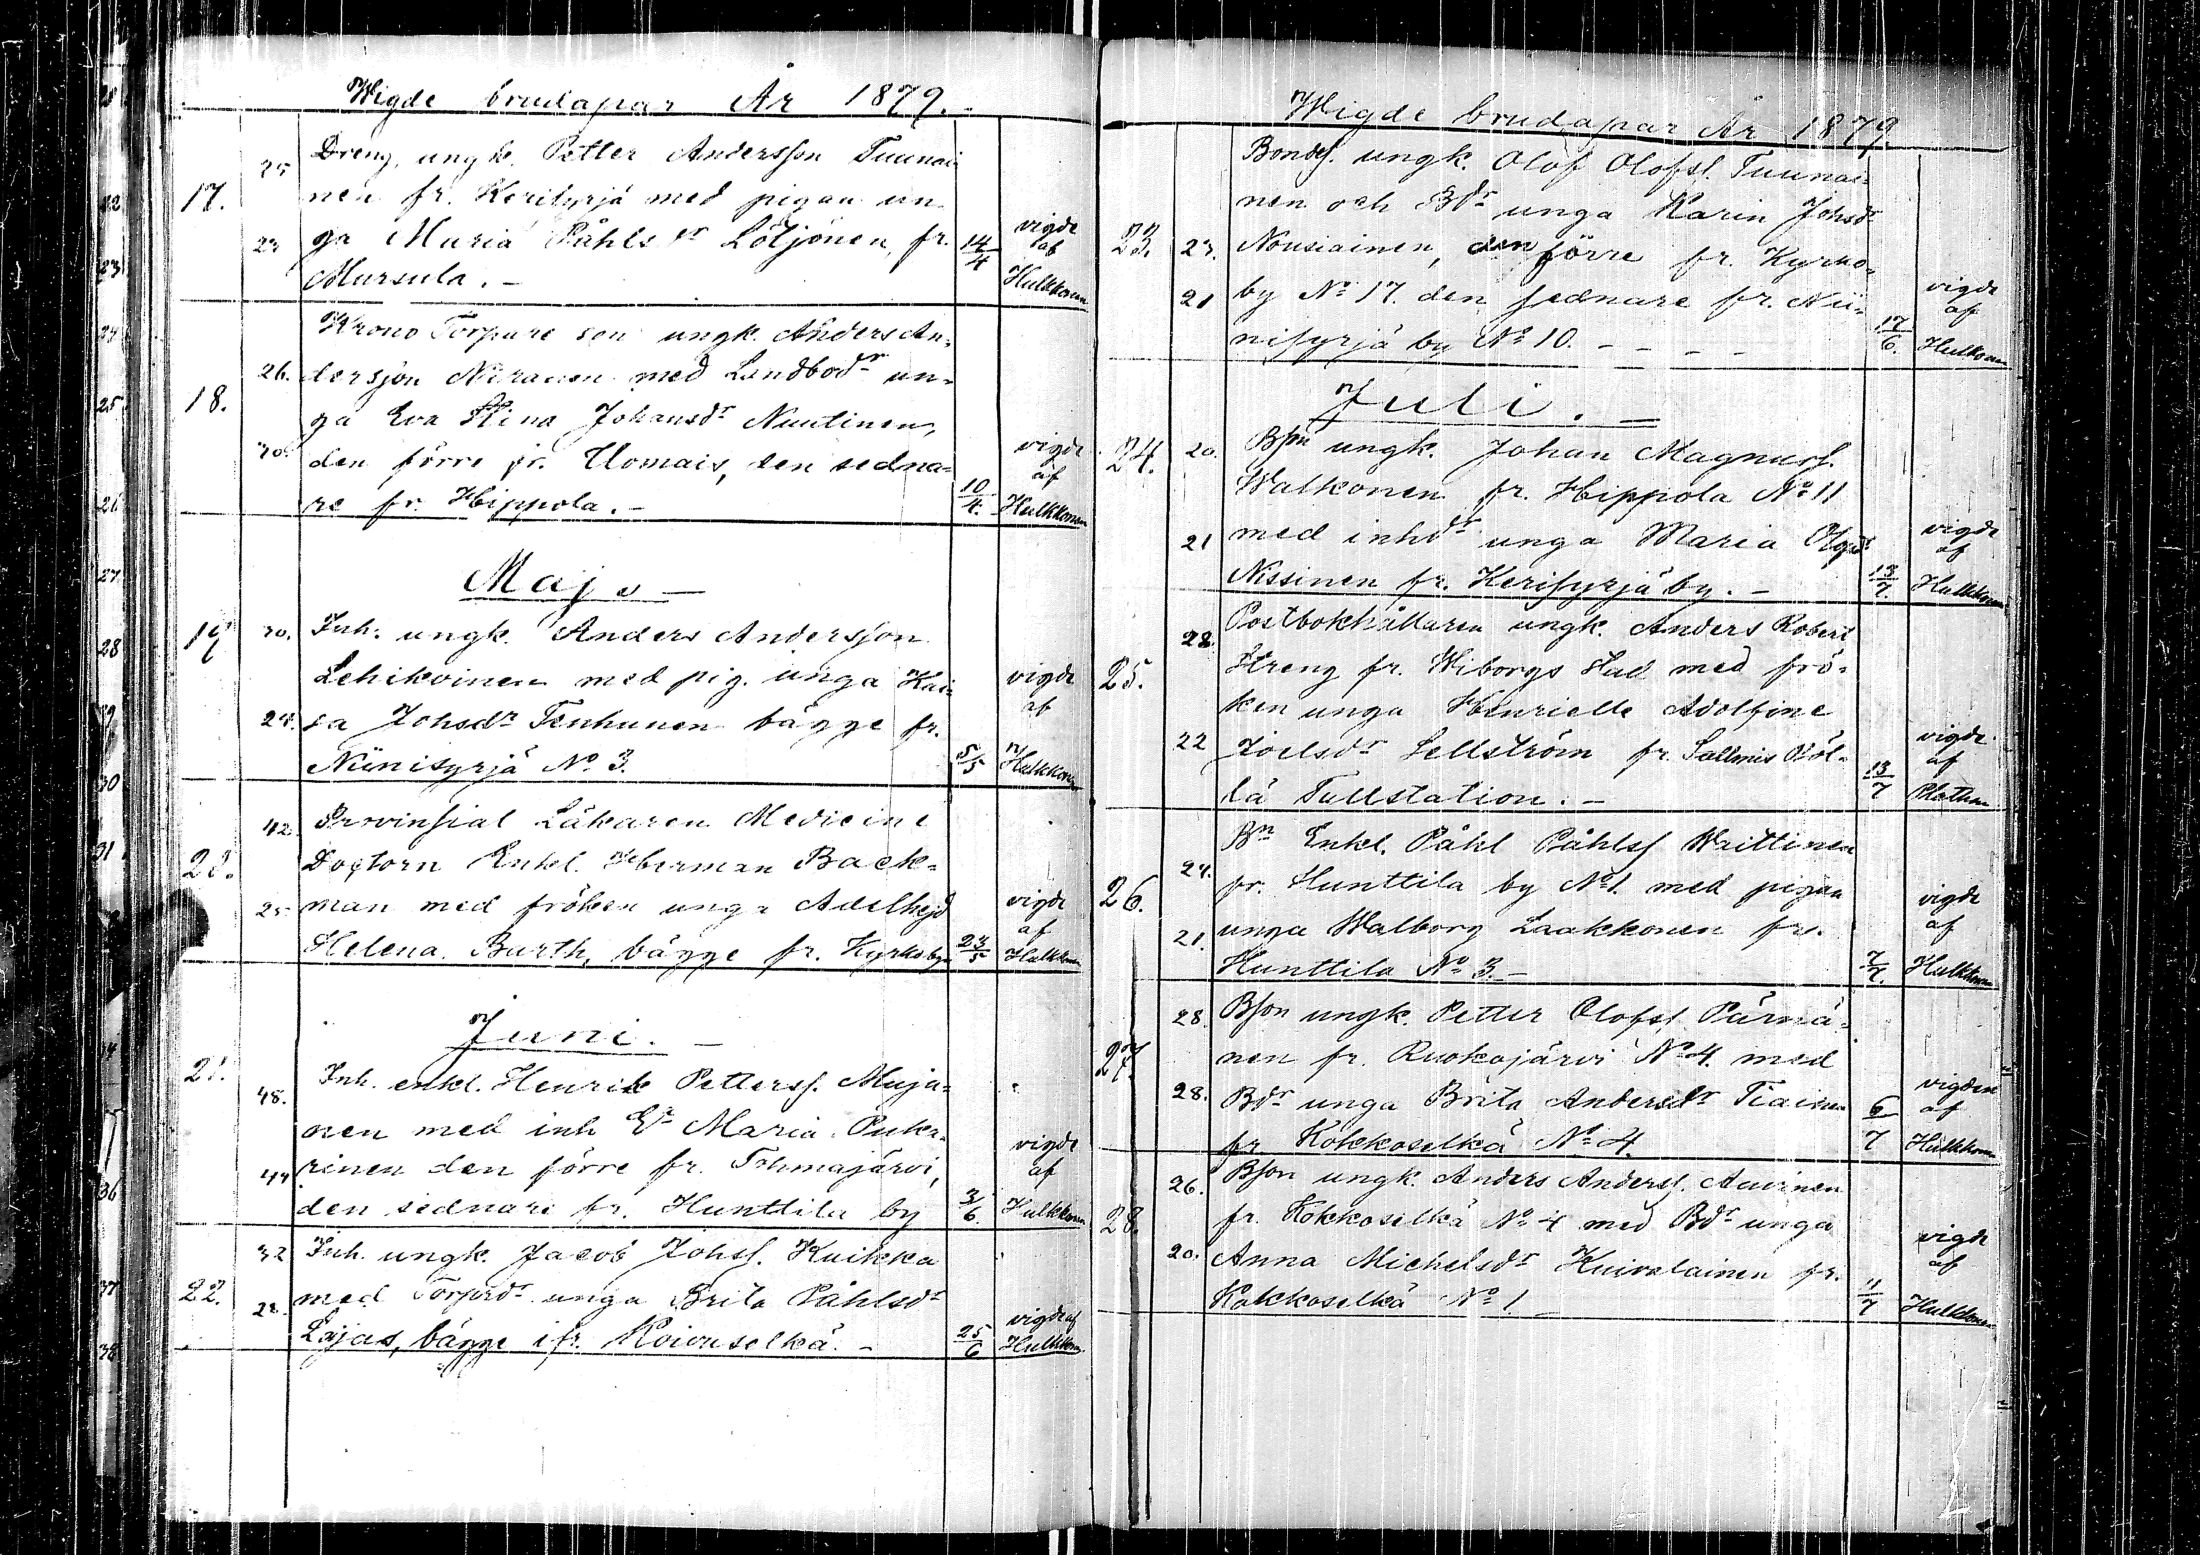 Wigde brudapar År 1879.
17.
25
Dreng, ungk. Petter Andersson Tuunai-
nen fr. Kerisyrjä med pigan un-
23
ga Maria Påhlsdr Lötjönen, fr.
Mursula. -
14/4
vigde
af
Hulkkonen
18.
Krono Torpare son ungk. Anders An-
26.
dersson Niranen med Landbodr un-
ga Eva Stina Johansdr Nuutinen,
den förre fr. Uomais, den sedna-
re fr. Hippola. -
10/4.
vigde
af
Hulkkonen
Maj
19
30.
Inh. ungk. Anders Andersson
Lehikoinen med pig. unga Kai-
24.
sa Johsdr Tenhunen bägge fr.
Niinisyrjä No 3.
5/5
vigde
af
Hulkkonen
42.
Provinsial Läkaren Medicine
Doctorn Enkl. Herman Back-
25
man med fröken unga Adelhejd
Helena Barth, bägge fr. Kyrkoby
23/5
vigde
af
Hulkkonen
Juni. -
21.
48.
Inh. enkl. Henrik Petterss. Muja-
nen med inh Ea Maria Puka-
44
rinen den förre fr. Tohmajärvi,
den sednare fr. Hunttila by
3/6.
vigde
af
Hulkkonen
22.
32
Inh. ungk. Jacob Johss. Kuikka
28.
med Torpdr unga Brita Påhlsdr
Lajas, bägge ifr. Koivuselkä. -
25/6
vigde af
Hulkkonen
Wigde brudapar År 1879.
23.
Bondes. ungk. Olof Olofss. Tuunai-
nen och Bdr unga Karin Johsdr
23.
Nousiainen, den förre fr. Kyrko-
21
by No 17. den sednare fr. Nii-
nisyrjä by No 10. - - - -
17/6.
vigde
af
Hulkkonen
Juli. -
24.
20.
Bson ungk. Johan Magnuss.
Walkonen fr. Hippola No 11
21
med inhdr unga Maria
Nissinen fr. Kerisyrjä by. -
13/7.
vigde
af
Hulkkonen
25.
28.
Postbokhållaren ungk. Anders Robert
Streng fr. Wiborgs Stad med frö-
ken unga Henriette Adolfine
22
Joelsdr Sellström fr. Salmis
Tullstation. -
13/7
vigde
af
26.
24.
Bn Enkl. Påhl Påhlss Waittinen
fr. Hunttila by No 1. med pigan
21.
unga Walborg Laakkonen fr.
Hunttila No 3. -
7/7.
vigde
af
Hulkkonen
27.
28.
Bson ungk. Petter Olofss. Pärnä-
nen fr. Ruokojärvi No 4. med
28.
Bdr unga Brita Andersdr Tiainen
fr Kokkoselkä No 4.
6/7
vigden
af
Hulkkonen
28.
26.
Bson ungk. Anders Anderss. Auvinen
fr. Kokkoselkä No 4 med Bdr unga
20.
Anna Michelsdr Kuivalainen fr.
Kokkoselkä No 1 -
11/7
vigde
af
Hulkkonen